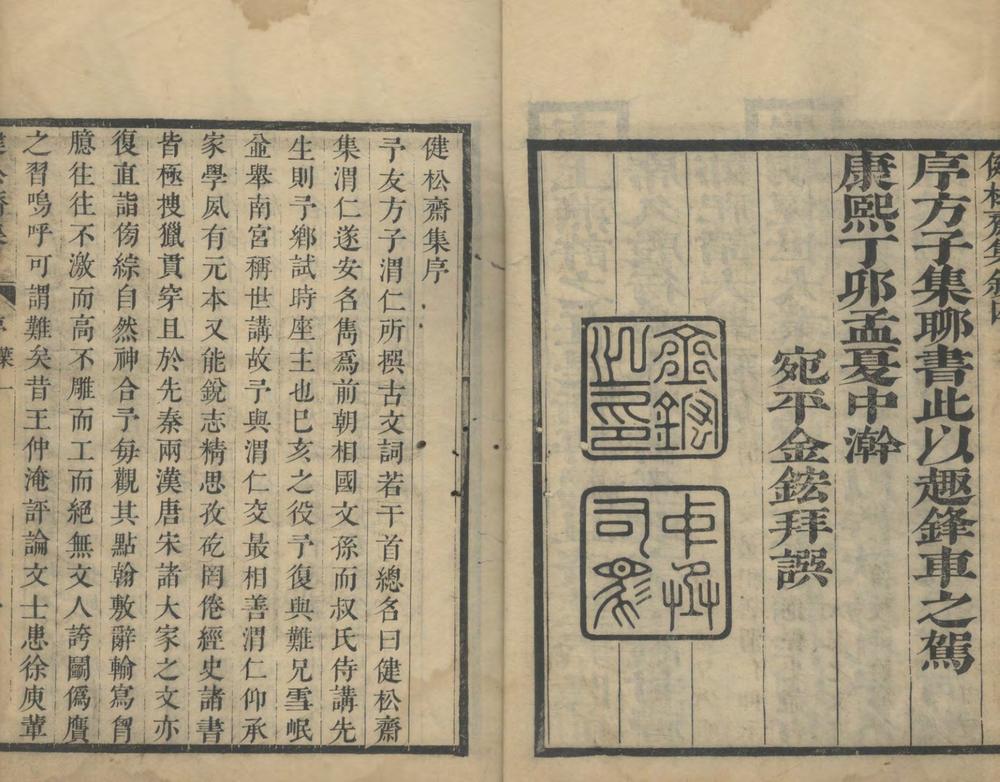 健松齋集叙四
序方子集聊書此以趣鋒車之駕
康熙丁卯孟夏中澣
宛平金鋐拜譔
金鋐之印
健松齋集序
予友方子渭仁所撰古文詞若干首總名曰健松齋
集渭仁遂安名雋爲前朝相國文孫而叔氏侍講先
生則予鄉試時座主也巳亥之役予復與難兄雪岷
僉舉南宮稱世講故予與渭仁交最相善渭仁仰承
家學夙有元本又能銳志精思孜矻罔倦經史諸書
皆極搜獵貫穿且於先秦兩漢唐宋諸大家之文亦
復直詣傍綜自然神合予每觀其點翰敷辭輸寫胷
臆往往不激而高不雕而工而絕無文人誇鬭僞贋
之習嗚呼可謂難矣昔王仲淹評論文士患徐庾輩
健松齋集
序葉一